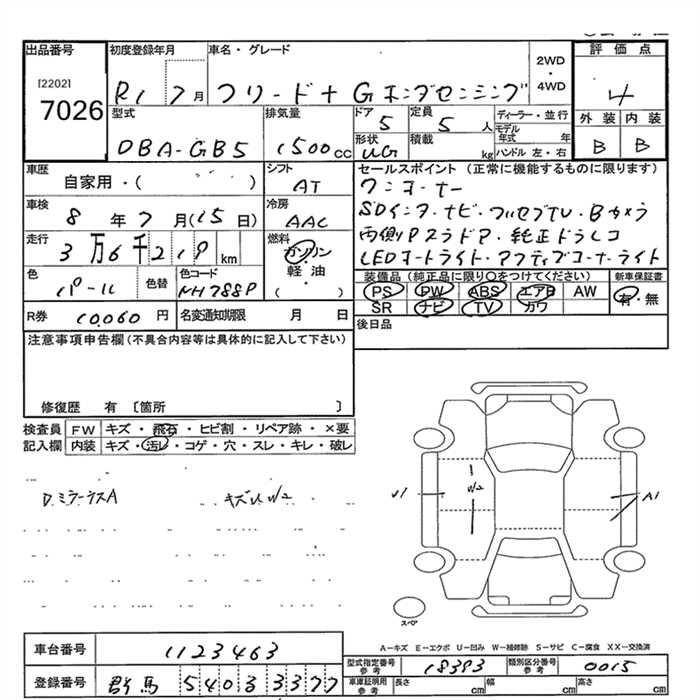 出品番号 初度登録年月 車名・グレード 2WD・4WD 評価点
[2202]
7026 R1 7月 フリード+ Gホンダセンシング 4
型式 排気量 ドア 定員 ディーラー・並行 外装 内装
DBA-GB5 1500cc 5 5人 モデル年式 年 B B
形状 積載 kg ハンドル 左・右
UG
車歴 シフト セールスポイント (正常に機能するものに限ります)
自家用・( ) AT ワンオーナー
車検 冷房 SDインタ・ナビ・フルセグTV・Bカメラ
8年7月(15日) AAC 両側Pスラドア・純正ドラレコ
走行 燃料 LEDオートライト・アクティブコーナーライト
3万6千219km ガソリン・軽油( )
色 色替 色コード 装備品 (純正品に限り○をつけてください) 新車保証書
パール NH788P PS PW ABS エアB AW 有・無
SR ナビ TV カワ
R券 10,060円 名変通知期限 月 日 後日品
注意事項申告欄(不具合内容等は具体的に記入して下さい)
修復歴 有 〔箇所 〕
検査員 FW キズ・飛石・ヒビ割・リペア跡・×要
記入欄 内装 キズ・汚レ・コゲ・穴・スレ・キレ・破レ
D.ミラーラスA キズU W2
U1 W2 A1
スペア
A-キズ E-エクボ U-凹み W-補修跡 S-サビ C-腐食 XX-交換済
車台番号 1123463 型式指定番号 参考 18393 類別区分番号 参考 0015
登録番号 群馬 540 る 3377 車庫証明用 参考 長さ cm 幅 cm 高さ cm